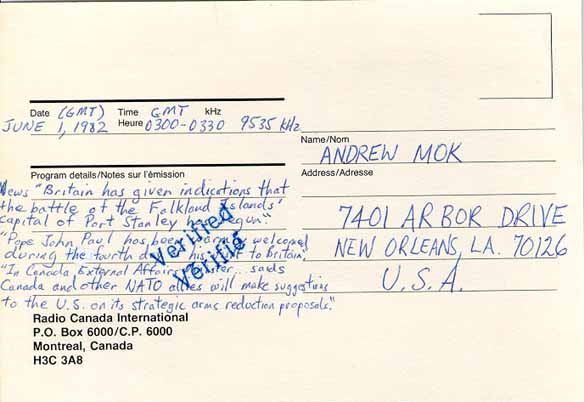 Date (GMT) Time GMT kHz
JUNE 1, 1982 Heure 0300-0330 9535 KHz
Program details/Notes sur l'émission
News "Britain has given indications that
the battle of the Falkland Islands'
capital of Port Stanley has begun."
"Pope John Paul has been warmly welcomed
during the fourth day his visit to Britain."
"In Canada External Affairs Minister... said
Canada and other NATO allies will make suggestions
to the U.S. on its strategic arms reduction proposals."
Verified
Vérifié
Radio Canada International
P.O. Box 6000/C.P. 6000
Montreal, Canada
H3C 3A8
Name/Nom
ANDREW MOK
Address/Adresse
7401 ARBOR DRIVE
NEW ORLEANS, LA. 70126
U.S.A.